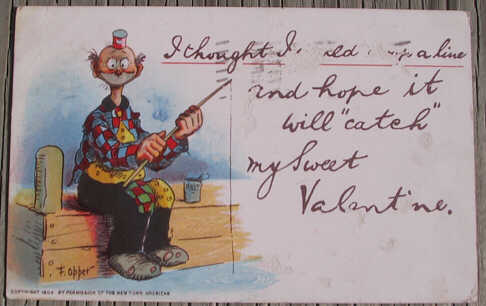 I thought I a line
and hope it
will "catch"
my Sweet
Valentine.
F. Opper
COPYRIGHT 1904 BY PERMISSION OF THE NEW YORK AMERICAN